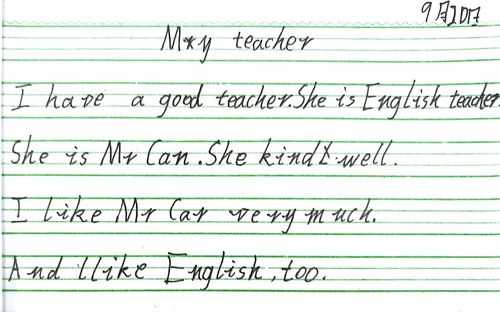 9月20日
My teacher
I have a good teacher. She is English teacher.
She is Mr Can. She kind well.
I like Mr Car very much.
And I like English, too.